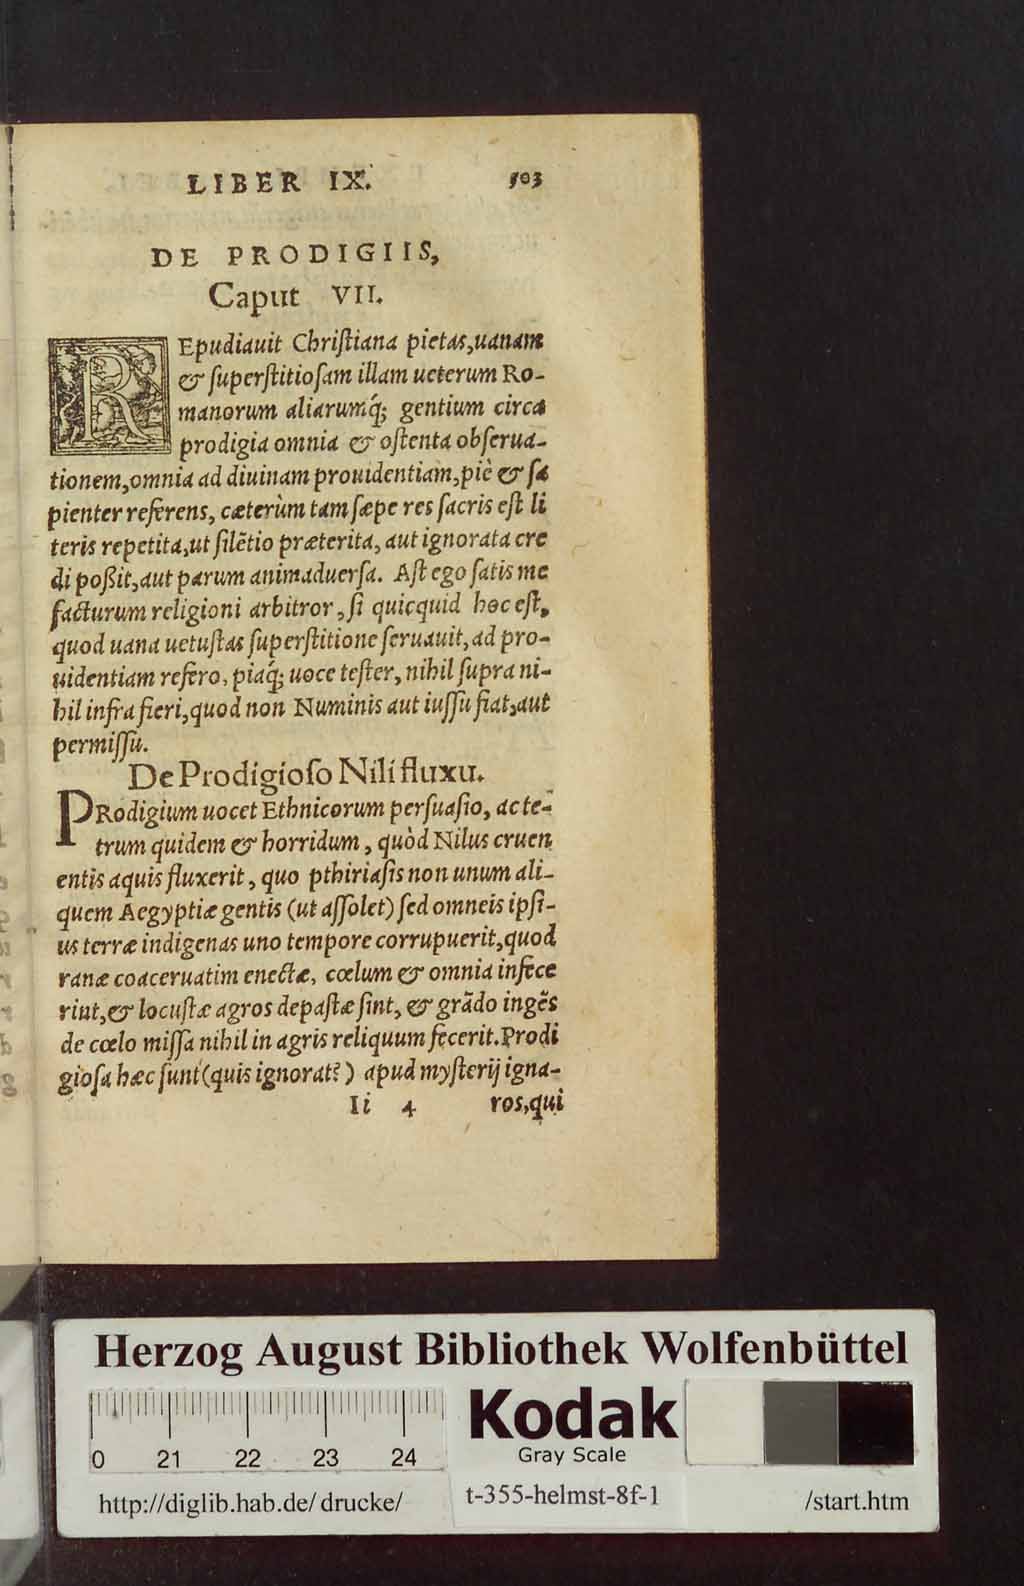 LIBER IX. 503
DE PRODIGIIS,
Caput VII.
REpudiauit Chriſtiana pietas, uanam
& ſuperſtitioſam illam ueterum Ro-
manorum aliarumq́; gentium circa
prodigia omnia & oſtenta obſerua-
tionem, omnia ad diuinam prouidentiam, piè & ſa
pienter referens, cæterùm tam ſæpe res ſacris eſt li
teris repetita, ut ſilētio præterita, aut ignorata cre
di poßit, aut parum animaduerſa. Aſt ego ſatis me
facturum religioni arbitror, ſi quicquid hoc eſt,
quod uana uetuſtas ſuperſtitione ſeruauit, ad pro-
uidentiam refero, piaq́; uoce teſter, nihil ſupra ni-
hil infra fieri, quod non Numinis aut iuſſu fiat, aut
permiſſu.
De Prodigioſo Nili fluxu.
PRodigium uocet Ethnicorum perſuaſio, ac te-
trum quidem & horridum, quòd Nilus cruen
entis aquis fluxerit, quo pthiriaſis non unum ali-
quem Aegyptiæ gentis (ut aſſolet) ſed omneis ipſi-
us terræ indigenas uno tempore corrupuerit, quod
ranæ coaceruatim enectæ, cœlum & omnia infece
rint, & locuſtæ agros depaſtæ ſint, & grādo ingēs
de cœlo miſſa nihil in agris reliquum fecerit. Prodi
gioſa hæc ſunt (quis ignorat?) apud myſterij igna-
Ii 4 ros, qui
Herzog August Bibliothek Wolfenbüttel
0 21 22 23 24
Kodak
Gray Scale
http://diglib.hab.de/drucke/ t-355-helmst-8f-1 /start.htm